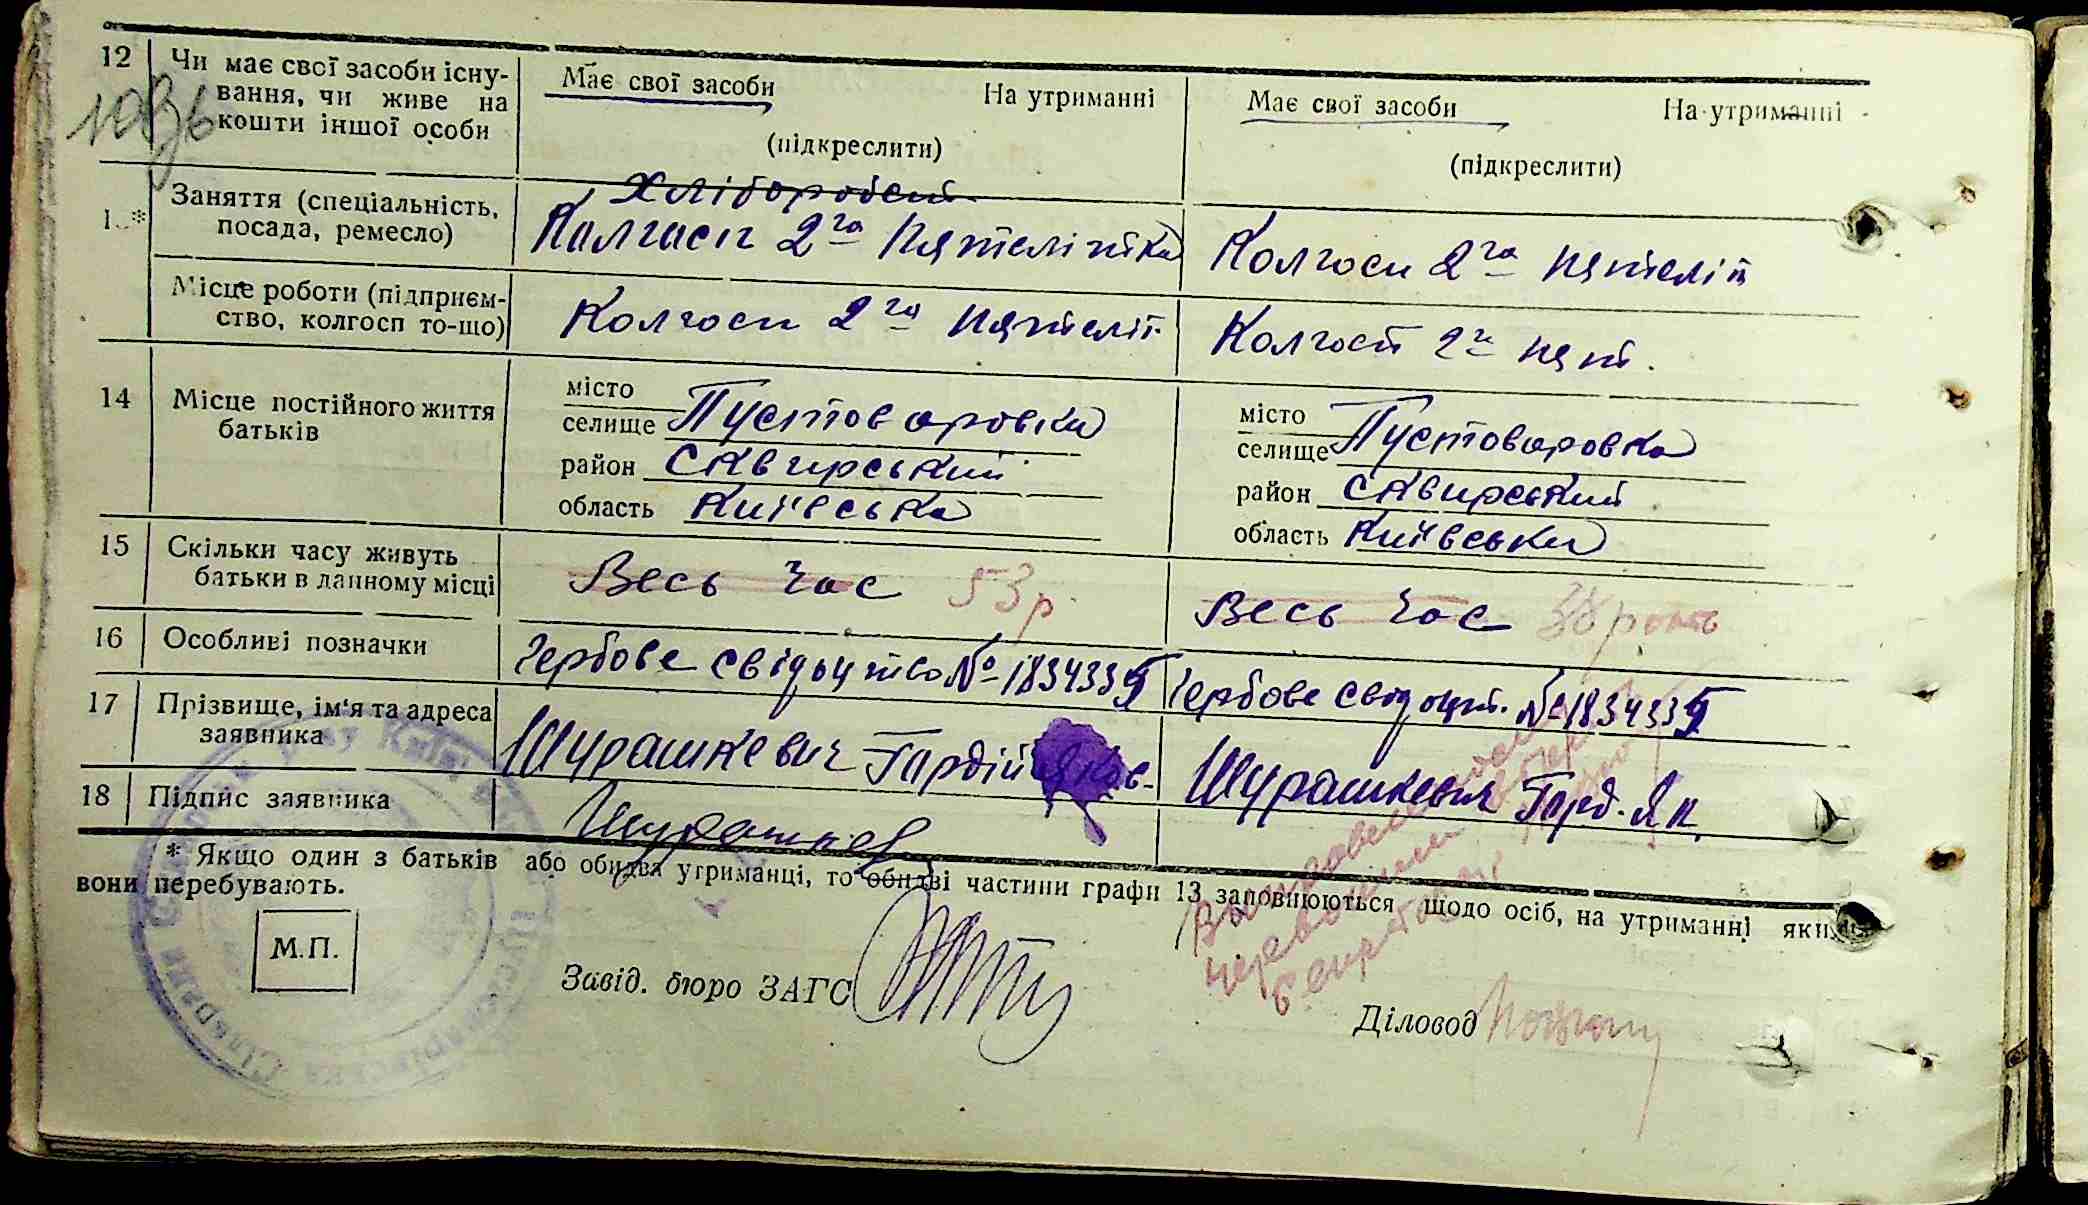 12 Чи має свої засоби існу- Має свої засоби На утриманні Має свої засоби На утриманні
вання, чи живе на
кошти іншої особи (підкреслити) (підкреслити)
Хліборобст
Заняття (спеціальність, Колгосп 2га Пятелітка Колгосп 2га пятеліт
посада, ремесло)
Місце роботи (підприєм- Колгосп 2га пятеліт. Колгосп 2га пят.
ство, колгосп то-що)
14 Місце постійного життя місто місто
батьків селище Пустоваровка селище Пустоваровка
район Сквирський район Сквирський
область Київська область Київська
15 Скільки часу живуть Весь час 53 р. Весь час
батьки в данному місці
16 Особливі позначки Гербове свідоцтво № 1834335 Гербове свідоцт. № 1834335
17 Прізвище, ім'я та адреса Шурашкевич Гардій Яков. Шурашкевич Гард. Як.
заявника
18 Підпис заявника
* Якщо один з батьків або обидва утриманці, то обидві частини графи 13 заповнюються щодо осіб, на утриманні яких
вони перебувають.
М.П.
Завід. бюро ЗАГС
Діловод